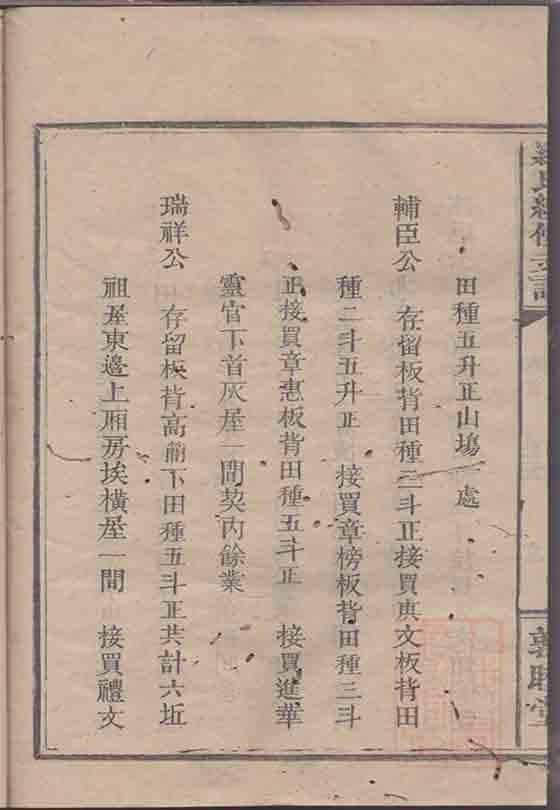 氏續修支譜
田種五升正山塲一處
輔臣公 存留板背田種三斗正接買典文板背田
種二斗五升正 接買章榜板背田種三斗
正接買章惠板背田種五斗正 接買進華
靈官下首灰屋一間契內餘業
瑞祥公 存留板背高䃄下田種五斗正共計六坵
祖屋東邊上廂房埃橫屋一間 接買禮文
敦睦堂